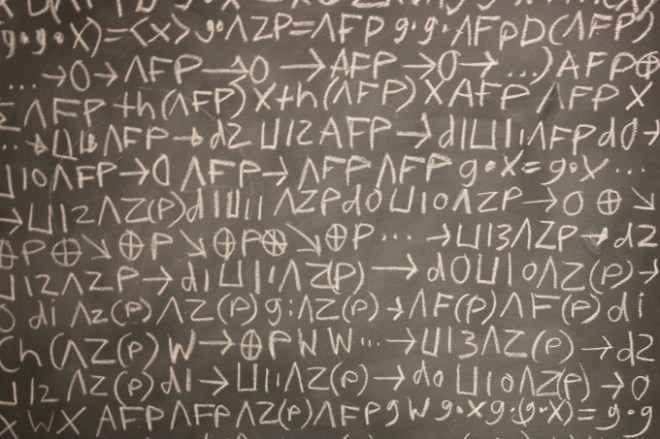 g·g·x)=<x> g·ΛZP=ΛFP g·g·ΛFPD(ΛFP)
...→0→ΛFP→0→AFP→0→...)AFP⊕
ΛFP+h(ΛFP)X+h(ΛFP)XAFPΛFPX
ΛFP→d2⊔12AFP→d1⊔11ΛFPd0→
⊔10ΛFP→0ΛFP→ΛFPΛFPg·x=g·x...
→⊔12ΛZ(P)d1⊔11ΛZPd0⊔10ΛZP→0⊕↘
⊕P⊕↘⊕P↘⊕P⊗↘⊕P...→⊔13ΛZP→d2
⊔12ΛZP→d1⊔11ΛZ(P)→d0⊔10ΛZ(P)→
diΛz(P)ΛZ(P)g:ΛZ(P)→ΛF(P)ΛF(P)di
Ch(ΛZ(P)W→⊕PWW...→⊔13ΛZ(P)→d2
⊔12ΛZ(P)d1→⊔11ΛZ(P)→d0⊔10ΛZ(P)→0
XWXAFPΛFPΛZ(P)ΛFPgWg·xg·(g·x)=g·g